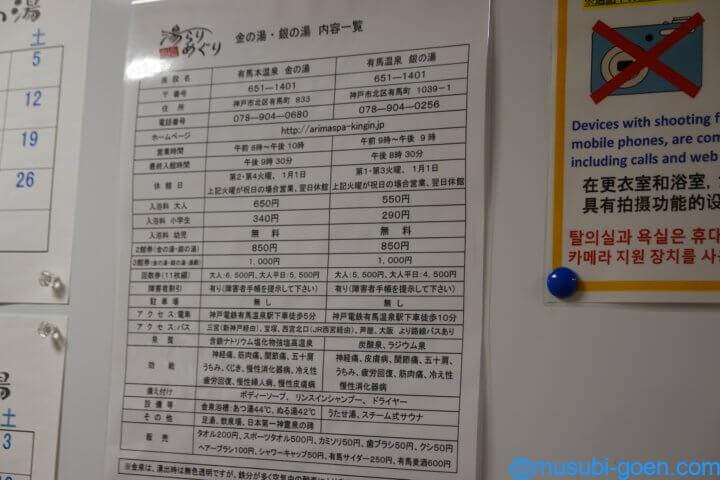 の湯
土
5
12
19
26
湯
土
3
湯らりめぐり
金の湯・銀の湯 内容一覧
施設名 有馬本温泉 金の湯 有馬温泉 銀の湯
〒番号 651-1401 651-1401
住所 神戸市北区有馬町 833 神戸市北区有馬町 1039-1
電話番号 078-904-0680 078-904-0256
ホームページ http://arimaspa-kingin.jp
営業時間 午前8時~午後10時 午前9時~午後 9時
最終入館時間 午後9時30分 午後8時30分
休館日 第2・第4火曜、1月1日 第1・第3火曜、1月1日
上記火曜が祝日の場合営業、翌日休館 上記火曜が祝日の場合営業、翌日休館
入浴料 大人 650円 550円
入浴料 小学生 340円 290円
入浴料 幼児 無料 無料
2館券(金の湯・銀の湯) 850円 850円
3館券 1,000円 1,000円
回数券(11枚綴) 大人:6,500円、大人平日:5,500円 大人:5,500円、大人平日:4,500円
障害者割引 有り(障害者手帳を提示して下さい) 有り(障害者手帳を提示して下さい)
駐車場 無し 無し
アクセス:電車 神戸電鉄有馬温泉駅下車徒歩5分 神戸電鉄有馬温泉駅下車徒歩10分
アクセス:バス 三宮(新神戸経由)、宝塚、西宮北口(JR西宮経由)、芦屋、大阪 より路線バスあり
泉質 含鉄ナトリウム塩化物強塩高温泉 炭酸泉、ラジウム泉
効能 神経痛、筋肉痛、関節痛、五十肩 神経痛、皮膚病、関節痛、五十肩、
うちみ、くじき、慢性消化器病、冷え性 うちみ、筋肉痛、慢性消化器病、冷え性
疲労回復、慢性婦人病、慢性皮膚病 疲労回復
備え付け ボディーソープ、 リンスインシャンプー、 ドライヤー
設備等 金泉浴槽:あつ湯44℃、ぬる湯42℃ うたせ湯、スチーム式サウナ
その他 足湯、飲泉場、日本第一神霊泉の碑
販売 タオル200円、スポーツタオル500円、カミソリ50円、歯ブラシ50円、クシ50円
ヘアーブラシ100円、シャワーキャップ50円、有馬サイダー250円、有馬麦酒600円
※金泉は、湧出時は無色透明ですが、鉄分が多く空気中の
Devices with shooting
mobile phones, are com
including calls and web
在更衣室和浴室,
具有拍摄功能的设
탈의실과 욕실은 휴대
카메라 지원 장치를 사용
@musubi-goen.com